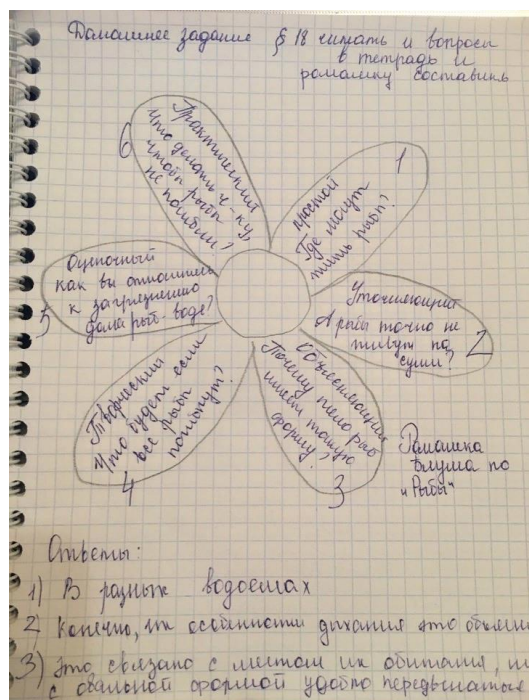 Домашнее задание § 18 читать и вопросы
в тетрадь и
ромашку составить
1
простой
Где могут
жить рыбы?
Уточняющий
А рыбы точно не
живут на
суши?
2
Объясняющий
Почему тело рыб
имеет такую
форму?
3
Творческий
Что будет если
все рыбы
погибнут?
4
Оценочный
как вы относитесь
к загрязнению
дома рыб-воде?
5
Практический
Что делать ч-ку,
чтобы рыбы
не погибли?
6
Ромашка
Блума по
"Рыбы"
Ответы:
1) В разных водоемах
2 Конечно, их особенности дыхания это
3) Это связано с местом их обитания,
с овальной формой удобно передвигаться